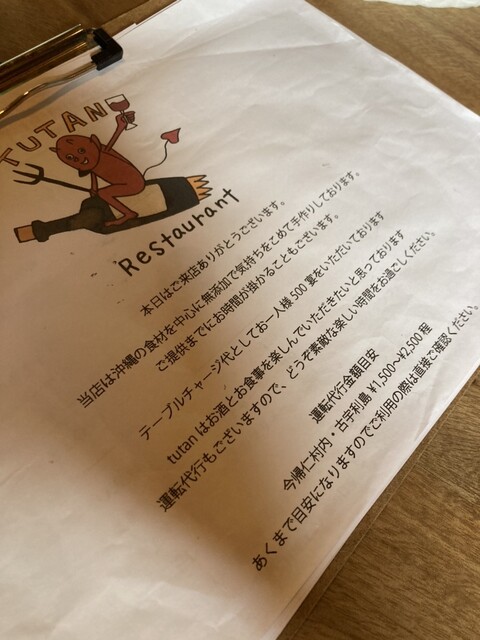 TUTAN
Restaurant
本日はご来店ありがとうございます。
当店は沖縄の食材を中心に無添加で気持ちをこめて手作りしております。
ご提供までにお時間が掛かることもございます。
テーブルチャージ代としてお一人様500宴をいただいております
tutanはお酒とお食事を楽しんでいただきたいと思っております
運転代行もございますので、どうぞ素敵な楽しい時間をお過ごしください。
運転代行金額目安
今帰仁村内・古宇利島 ¥1,500~¥2,500 程
あくまで目安になりますのでご利用の際は直接ご確認ください。